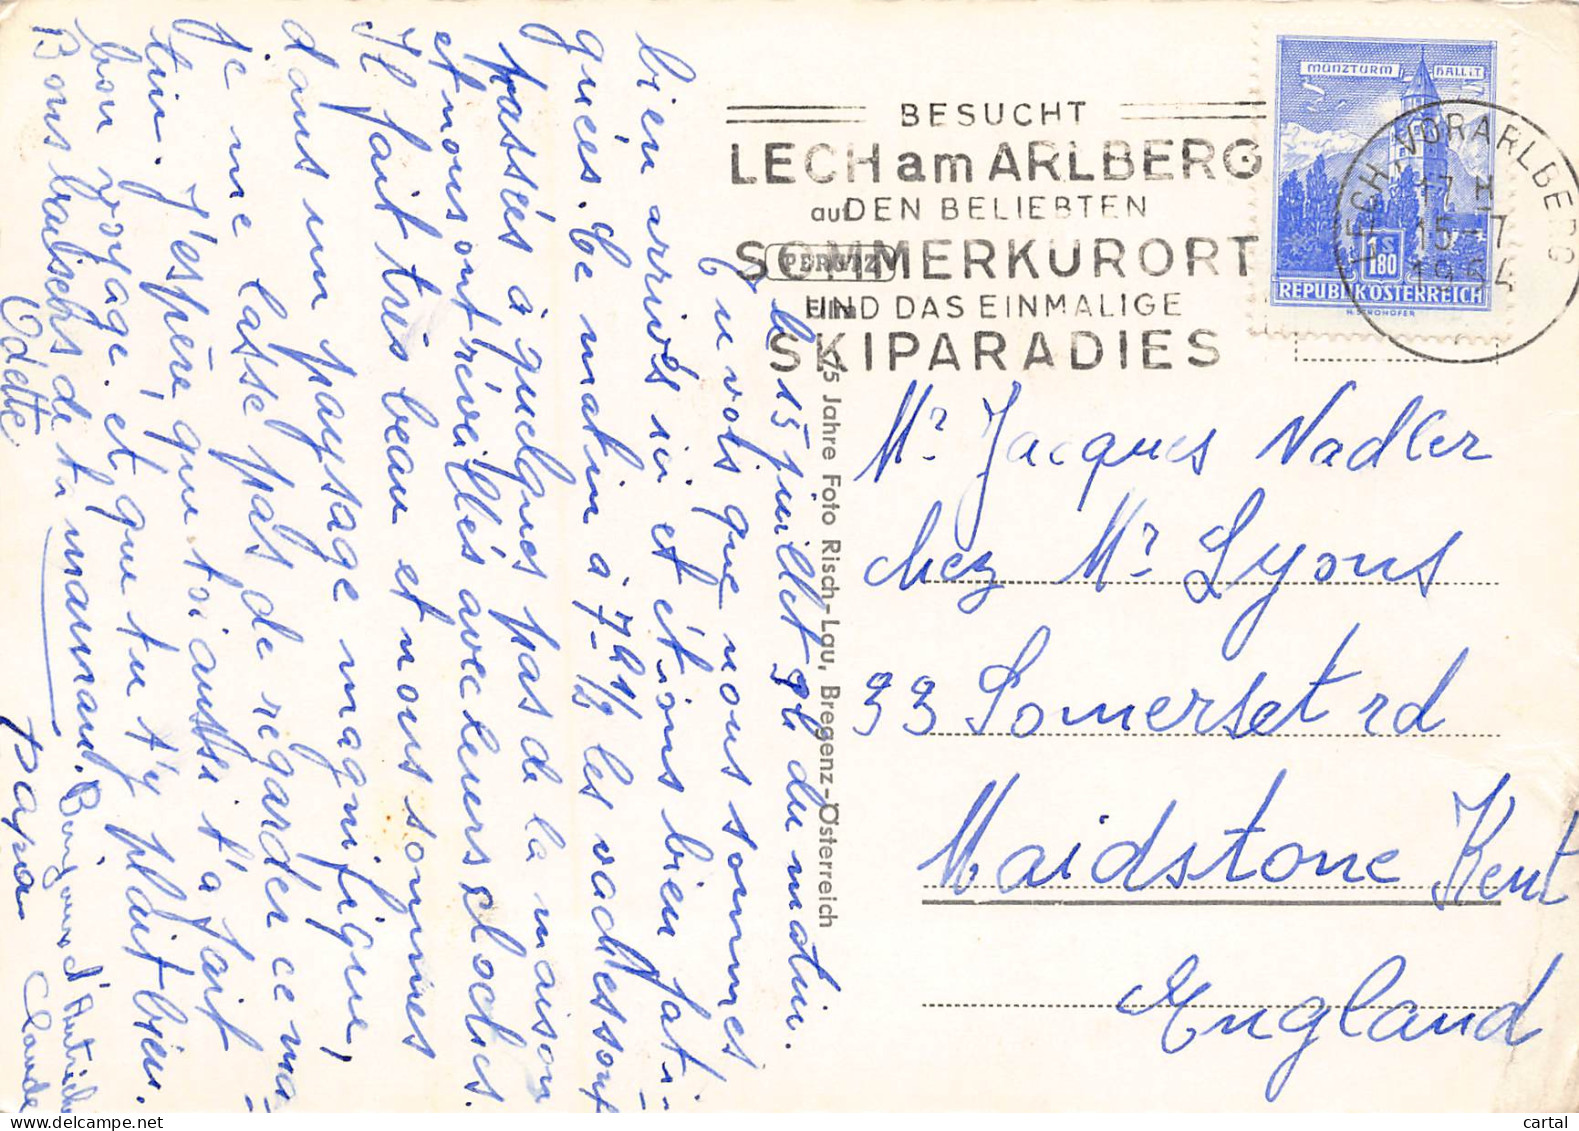 le 15 juillet 9h du matin.
Tu vois que nous sommes
bien arrivés ici et étions bien fati-
gués. Ce matin à 7h1/2 les vaches sont
passées à quelques pas de la maison
et nous ont réveillés avec leurs cloches.
Il fait très beau et nous sommes
dans un paysage magnifique,
je ne me lasse pas de regarder ce ma-
tin. J'espère que toi aussi t'a fait
bon voyage et que tu t'y plait bien.
Bons baisers de ta maman.
Odette
Papa
Bonjour d'Autriche
Claude
75 Jahre Foto Risch-Lau, Bregenz-Österreich
PERUTZ
BESUCHT
LECH am ARLBERG
DEN BELIEBTEN
SOMMERKURORT
UND DAS EINMALIGE
SKIPARADIES
MÜNZTURM HALL i.T.
1S80
REPUBLIK ÖSTERREICH
LECH, VORARLBERG
17 H
15-7
1964
Mr Jacques Nadler
chez Mr Lyons
33 Somerset rd
Maidstone Kent
England
cartoonal